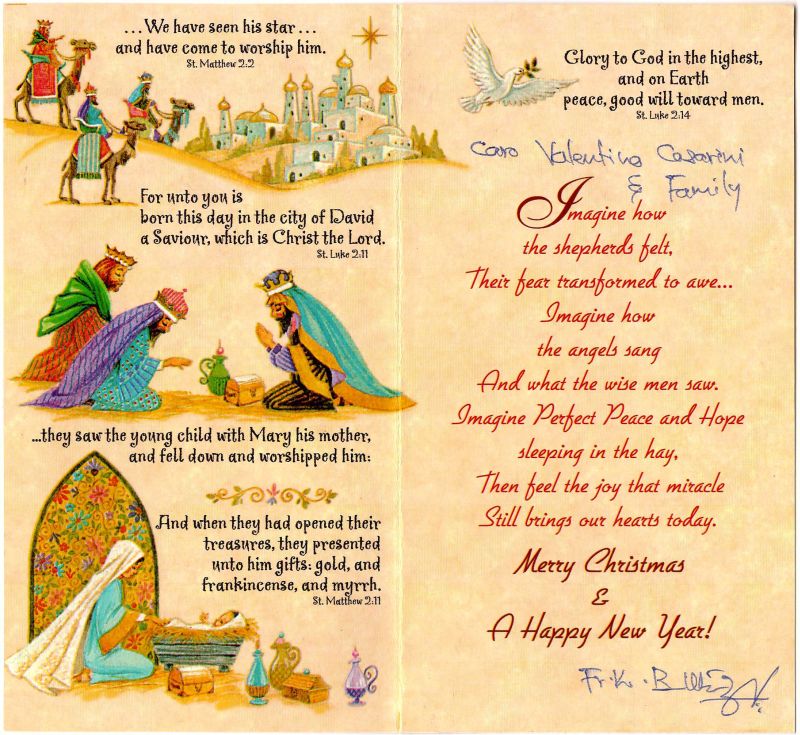 ...We have seen his star...
and have come to worship him.
St. Matthew 2:2
For unto you is
born this day in the city of David
a Saviour, which is Christ the Lord.
St. Luke 2:11
...they saw the young child with Mary his mother,
and fell down and worshipped him:
And when they had opened their
treasures, they presented
unto him gifts: gold, and
frankincense, and myrrh.
St. Matthew 2:11
Glory to God in the highest,
and on Earth
peace, good will toward men.
St. Luke 2:14
Caro Valentino Casarini
& Family
Imagine how
the shepherds felt,
Their fear transformed to awe...
Imagine how
the angels sang
And what the wise men saw.
Imagine Perfect Peace and Hope
sleeping in the hay,
Then feel the joy that miracle
Still brings our hearts today.
Merry Christmas
&
A Happy New Year!